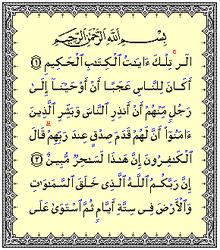 بِسْمِ اللَّهِ الرَّحْمَٰنِ الرَّحِيمِ
الٓر ۚ تِلْكَ ءَايَٰتُ ٱلْكِتَٰبِ ٱلْحَكِيمِ ١
أَكَانَ لِلنَّاسِ عَجَبًا أَنْ أَوْحَيْنَآ إِلَىٰ
رَجُلٍ مِّنْهُمْ أَنْ أَنذِرِ ٱلنَّاسَ وَبَشِّرِ ٱلَّذِينَ
ءَامَنُوٓا۟ أَنَّ لَهُمْ قَدَمَ صِدْقٍ عِندَ رَبِّهِمْ ۗ قَالَ
ٱلْكَٰفِرُونَ إِنَّ هَٰذَا لَسَٰحِرٌ مُّبِينٌ ٢
إِنَّ رَبَّكُمُ ٱللَّهُ ٱلَّذِى خَلَقَ ٱلسَّمَٰوَٰتِ
وَٱلْأَرْضَ فِى سِتَّةِ أَيَّامٍ ثُمَّ ٱسْتَوَىٰ عَلَى